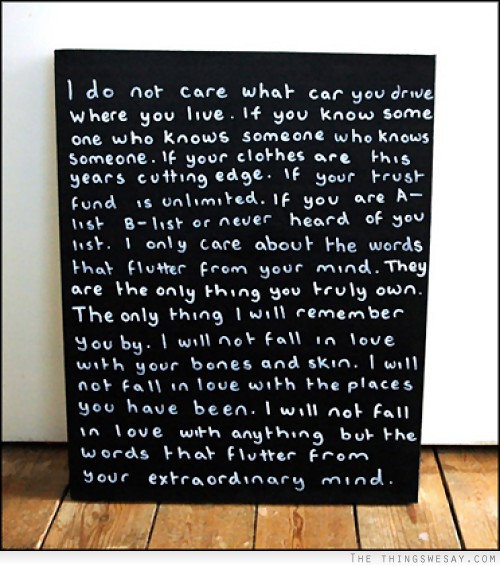 I do not care what car you drive
Where you live. If you know some
one who knows someone who knows
someone. If your clothes are this
years cutting edge. If your trust
fund is unlimited. If you are A-
list B-list or never heard of you
list. I only care about the words
that flutter from your mind. They
are the only thing you truly own.
The only thing I will remember
you by. I will not fall in love
with your bones and skin. I will
not fall in love with the places
you have been. I will not fall
in love with anything but the
words that flutter from
your extraordinary mind.
THE THINGSWESAY.COM